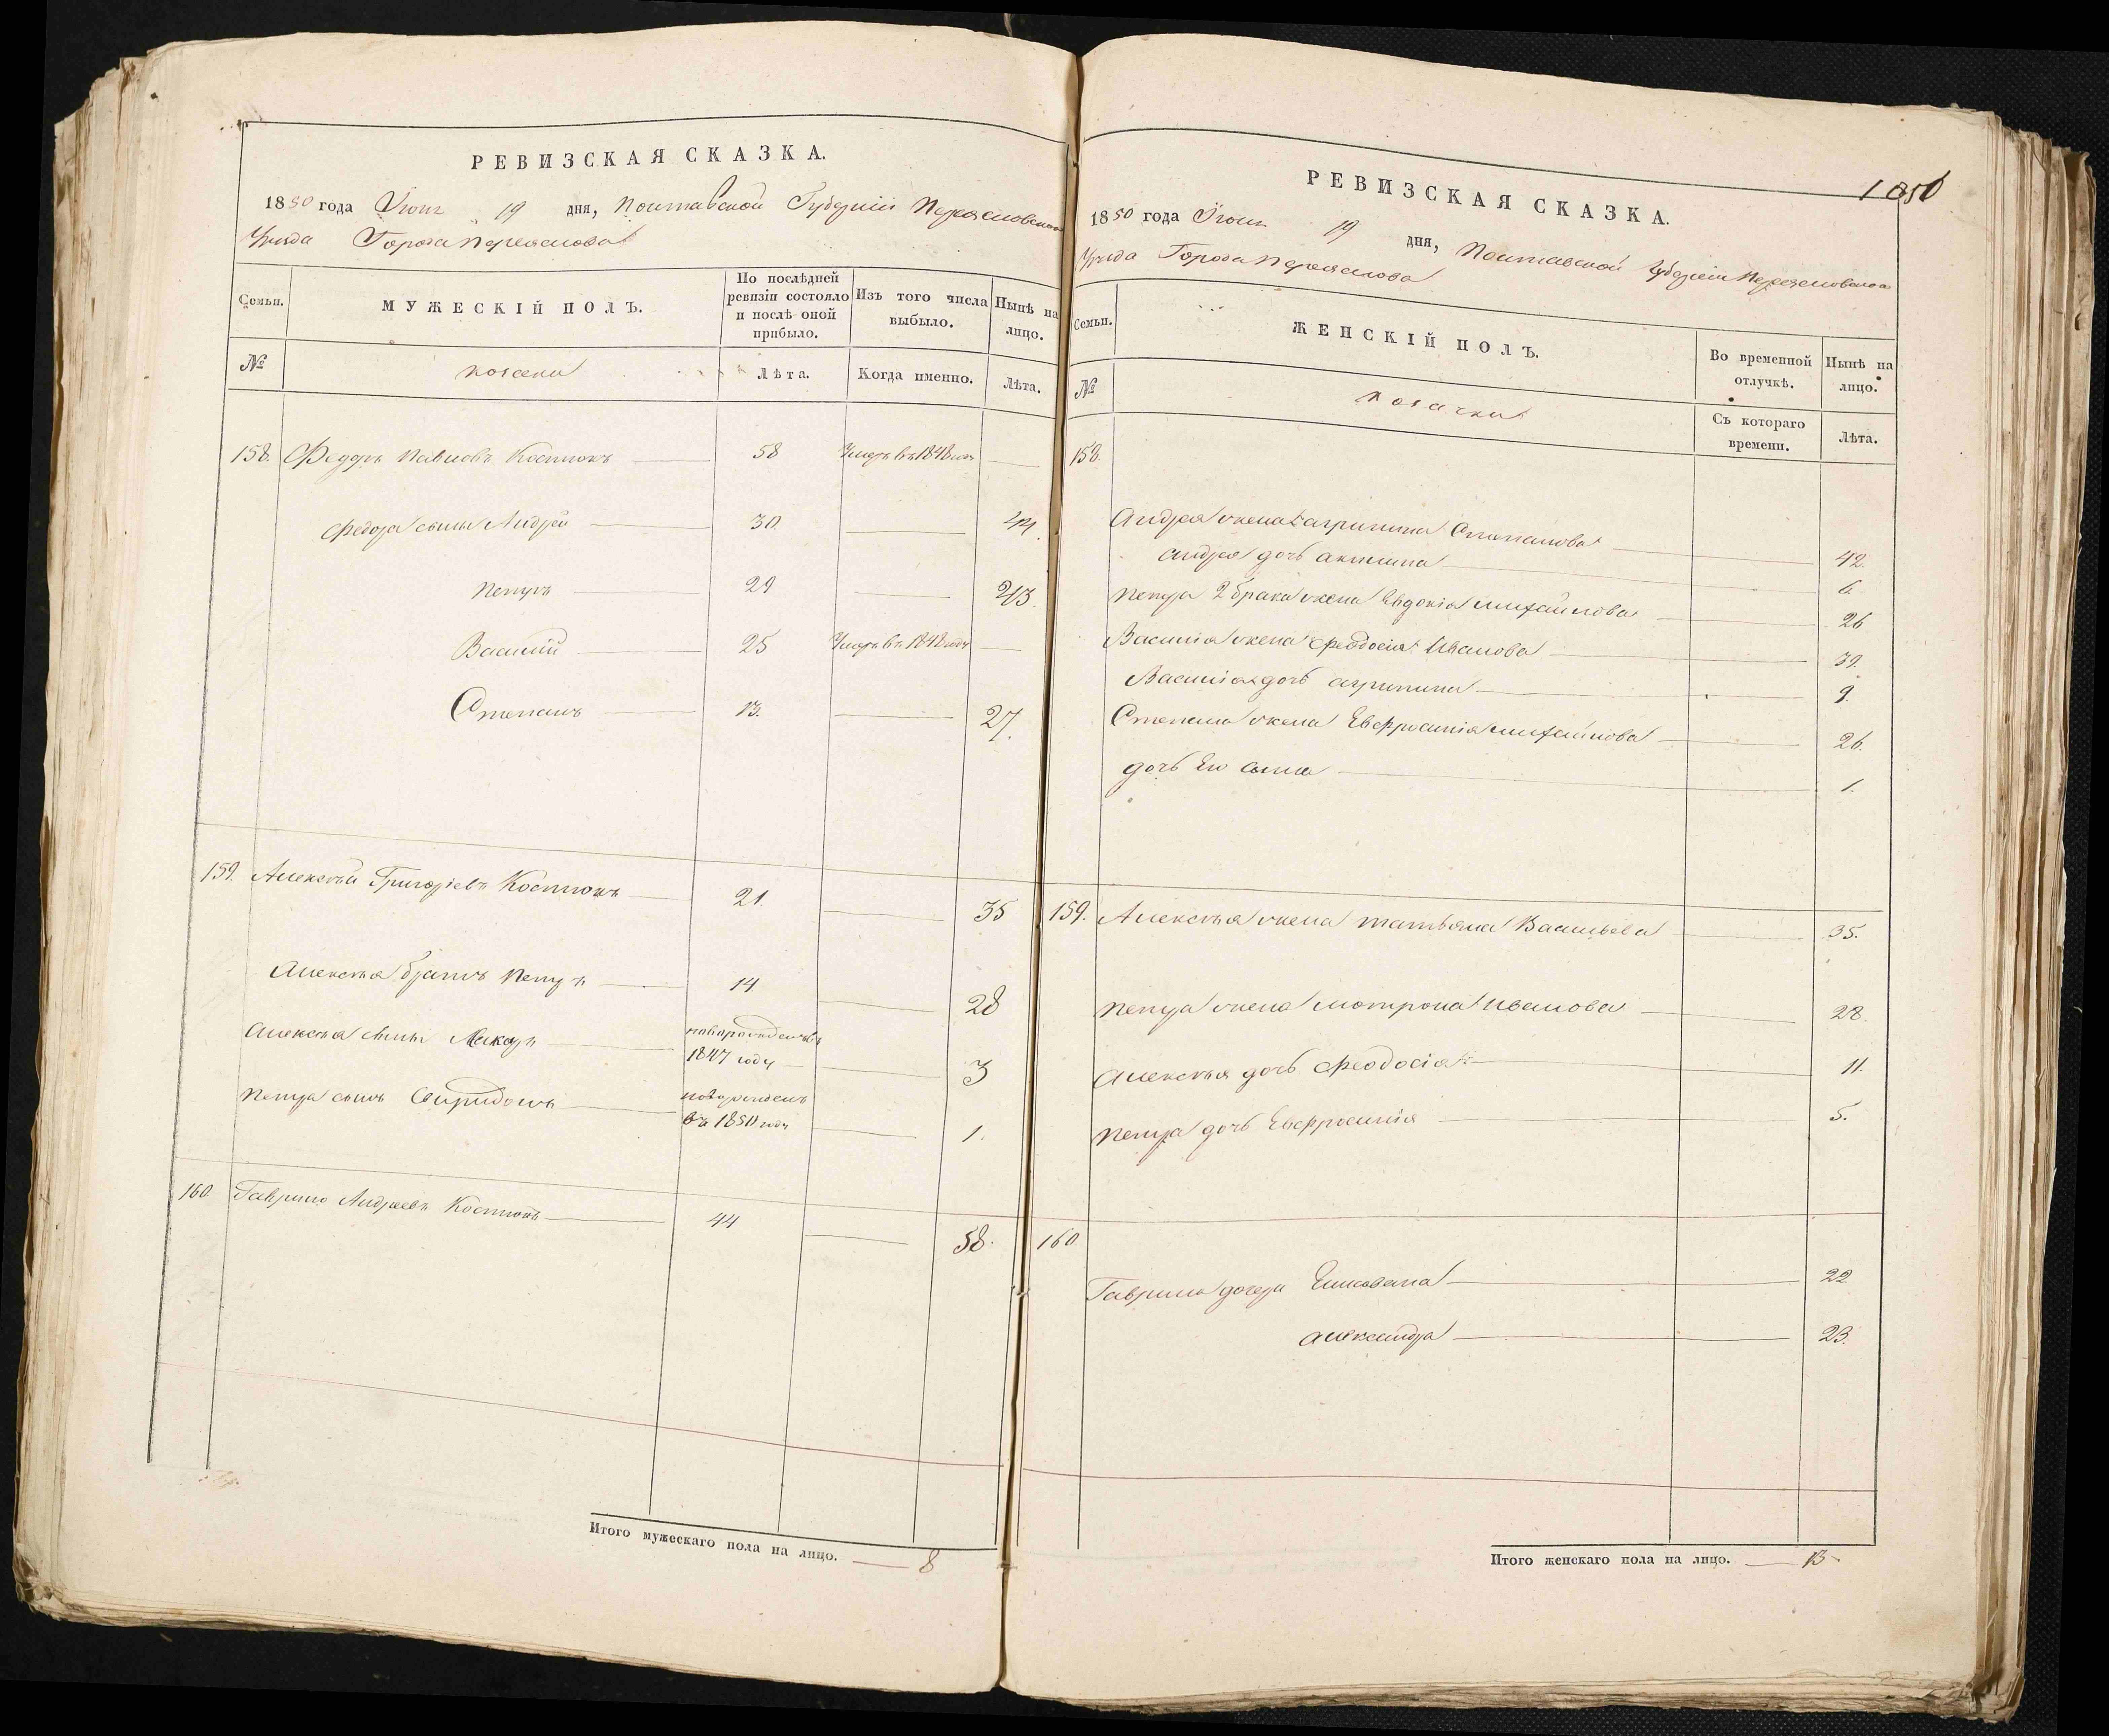 РЕВИЗСКАЯ СКАЗКА.
1850 года Июня 19 дня, Полтавской Губерніи Переясловскаго
Уезда Города Переяслова
Семьи.
МУЖЕСКІЙ ПОЛЪ.
По послѣдней ревизіи состояло и послѣ оной прибыло.
Изъ того числа выбыло.
Нынѣ на лицо.
№
козаки
Лѣта.
Когда именно.
Лѣта.
158. Федоръ Павловъ Костюкъ 58 Умеръ въ 1848 году
Федора сынъ Андрей 30. 44.
Петръ 29 43.
Василий 25 Умеръ въ 1848 году
Степанъ 13. 27.
159. Алексѣй Григоріевъ Костюкъ 21. 35
Алексѣя братъ Петръ 14 28
Алексѣя сынъ Макаръ новорожденъ въ
1847 году 3
Петра сынъ Свиридонъ новорожденъ
въ 1850 году 1.
160. Гаврило Андреевъ Костюкъ 44 58.
Итого мужескаго пола на лицо. 8
1050
РЕВИЗСКАЯ СКАЗКА.
1850 года Июня 19 дня, Полтавской Губерніи Переясловскаго
Уезда Города Переяслова
Семьи.
ЖЕНСКІЙ ПОЛЪ.
Во временной отлучкѣ.
Нынѣ на лицо.
№
козачки
Съ котораго времени.
Лѣта.
158.
Андрея жена агрипина Степанова 42.
андрея дочь акилина 6
Петра 2 брака жена Евдокія михайлова 26
Василія жена Феодосія Иванова 39.
Василія дочь агрипина 9.
Степана жена Евфросинія михайлова 26.
дочь Его 1.
159. Алексѣя жена татьяна Васильева 35.
Петра жена мотрона иванова 28.
Алексѣя дочь Феодосія 11.
Петра дочь Евфросинія 5.
160
Гаврила дочери Елисавета 22
александра 23.
Итого женскаго пола на лицо. 13